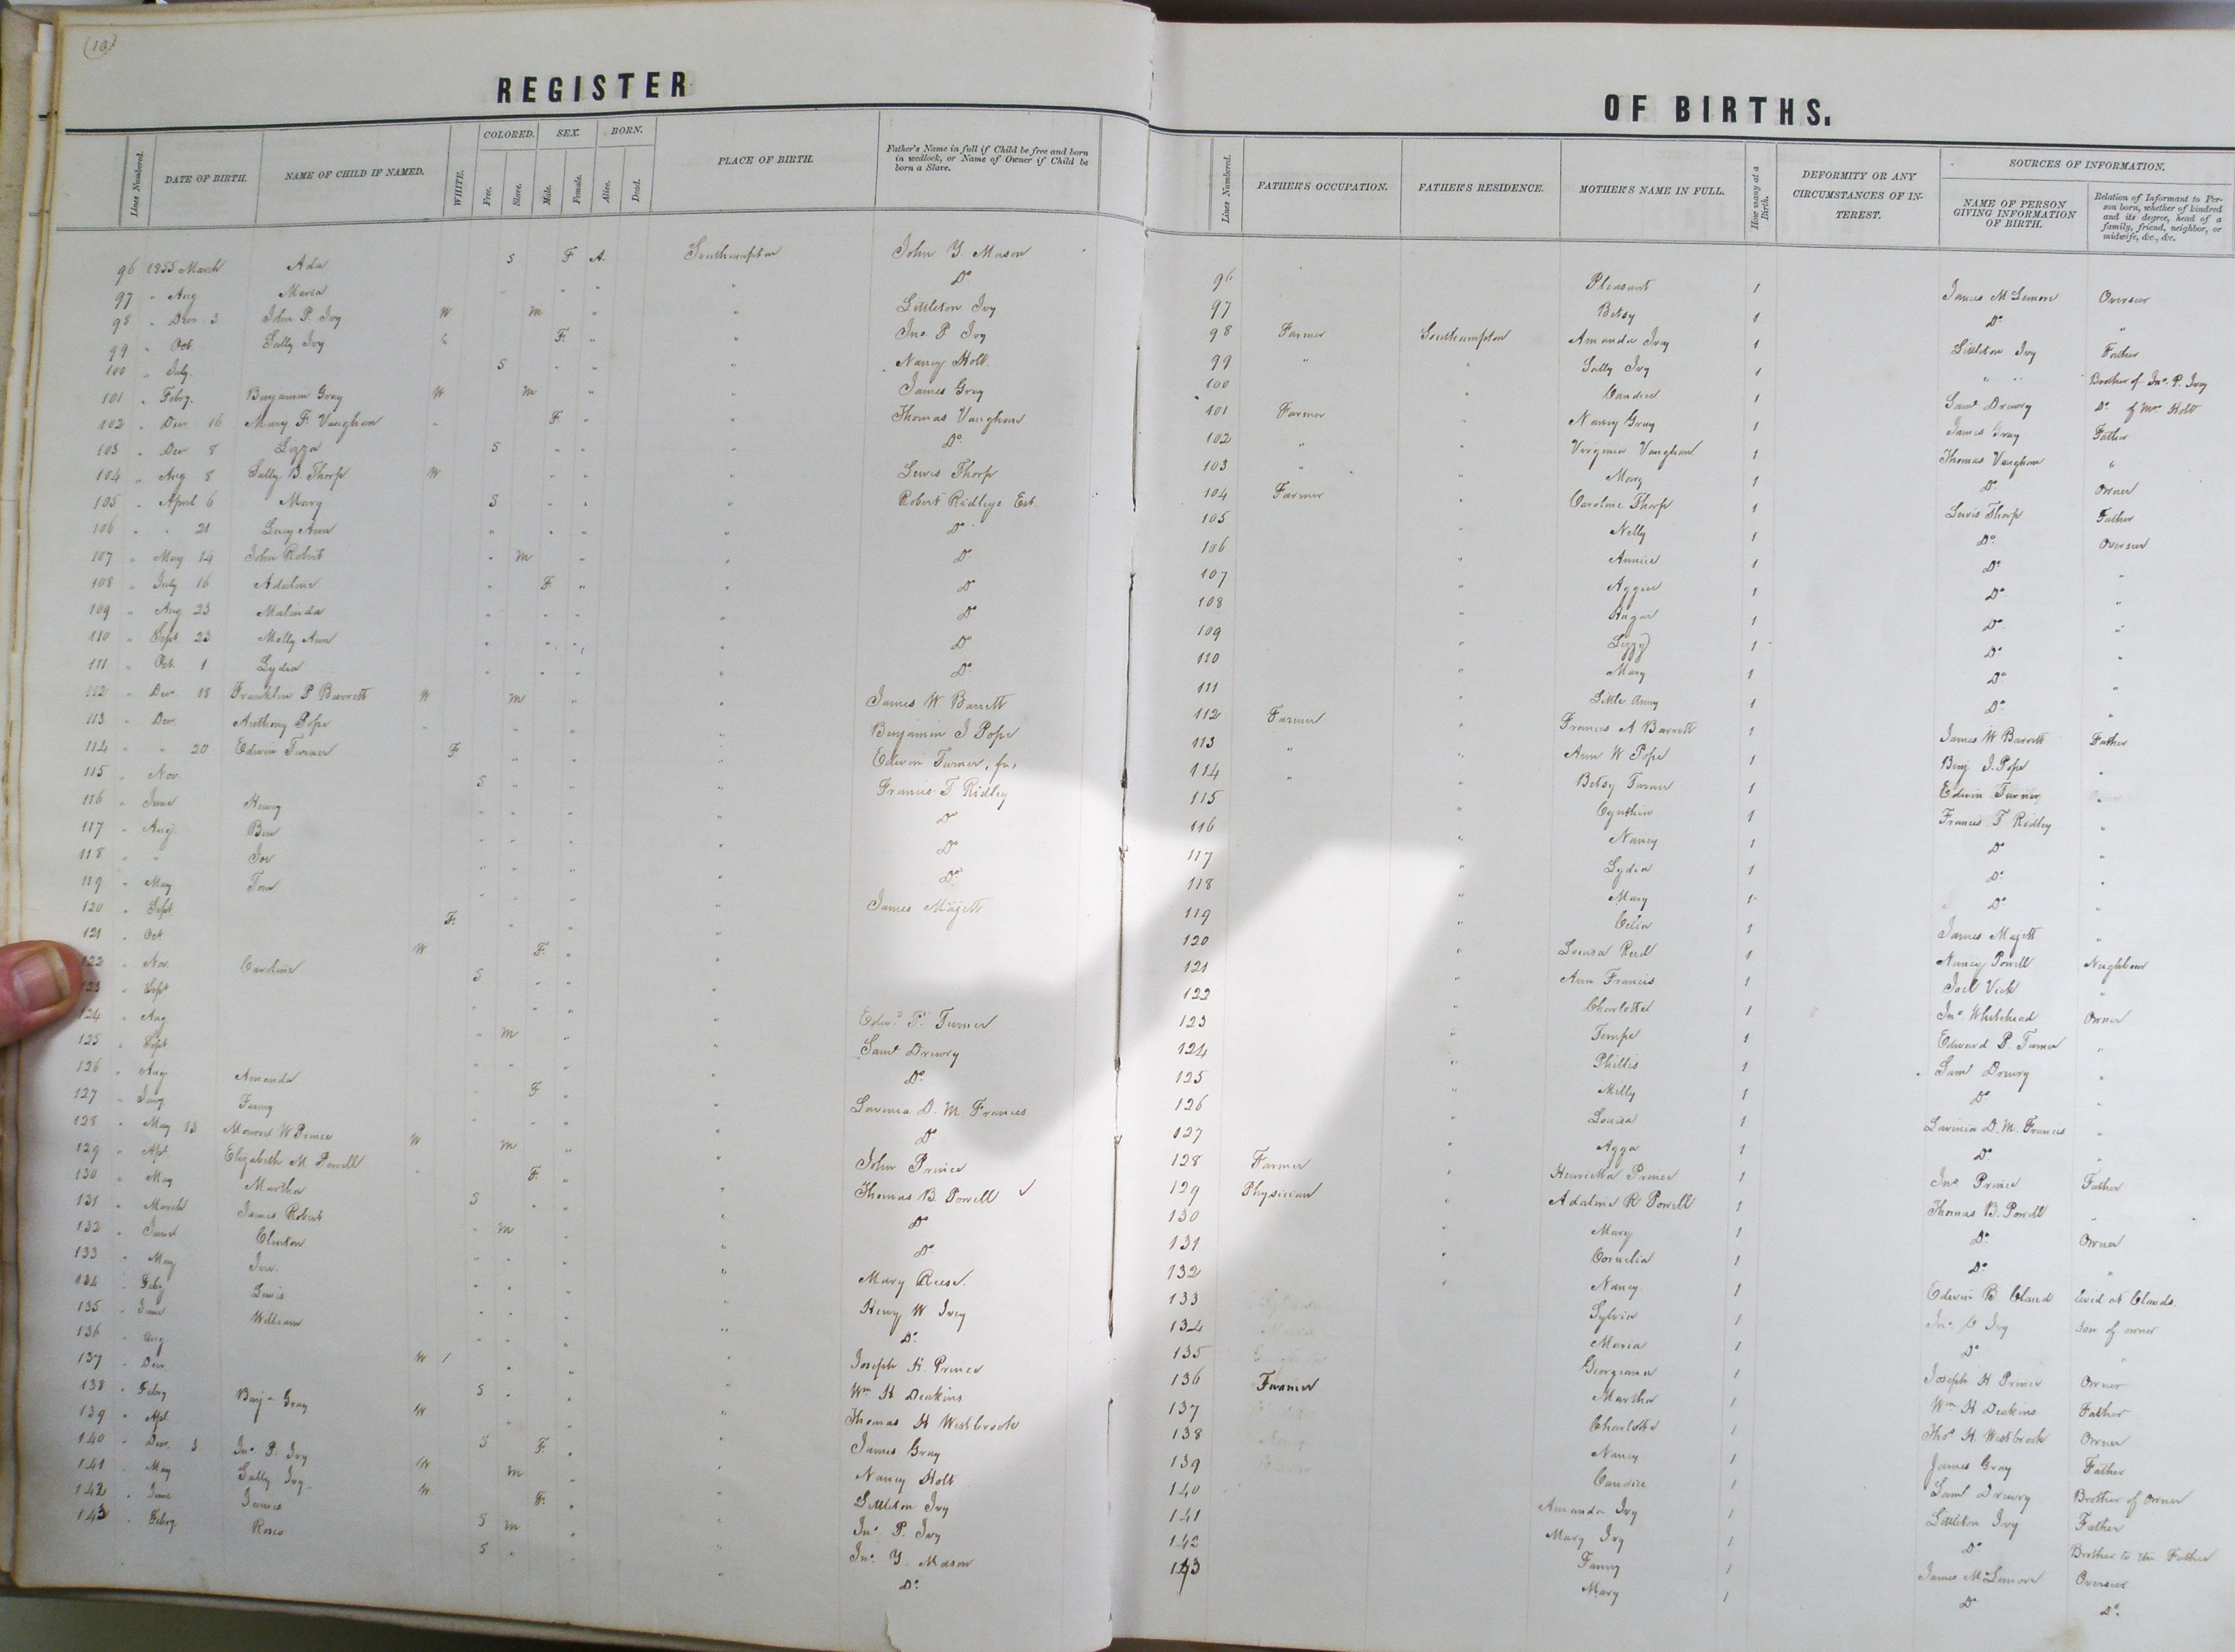 (10)
REGISTER
COLORED. SEX. BORN.
Lines Numbered. DATE OF BIRTH. NAME OF CHILD IF NAMED. WHITE. Free. Slave. Male. Female. Alive. Dead. PLACE OF BIRTH. Father's Name in full if Child be free and born in wedlock, or Name of Owner if Child be born a Slave.
96 1855 March Ada S F A. Southampton John Y. Mason
97 " Aug Maria " " " " Do
98 " Decr 3 John P. Ivy W M " " Littleton Ivy
99 " Oct. Sally Ivy F. " " Jno. P Ivy
100 " July. S " " " Nancy Holt.
101 " Febry. Benjamin Gray W M " " James Gray
102 " Decr 16 Mary F. Vaughan " F. " " Thomas Vaughan
103 " Decr 8 Lizza S " " " Do
104 " Aug 8 Sally B. Thorp W " " " Lewis Thorp
105 " April 6 Mary S " " " Robert Ridleys Est.
106 " " 21 Lucy Ann " " " " Do
107 " May 14 John Robert " M " " Do
108 " July 16 Adaline " F. " " Do
109 " Aug 23 Malinda " " " " Do
110 " Sept. 23 Molly Ann " " " " Do
111 " Oct. 1 Lydia " " " " Do
112 " Decr. 18 Franklin P Barrett W M " " James W Barrett
113 " Decr. Anthony Pope " " " " Benjamin J Pope
114 " " 20 Edwin Turner F " " " Edwin Turner,
115 " Nov. S " " " Francis T Ridley
116 " June Henry " " " " Do
117 " Aug Ben " " " " Do
118 " " Joe " " " " Do
119 " May Tom " " " " James Magett
120 " Sept. F. " " "
121 " Oct. W F. " "
122 " Nov. Caroline S " " "
123 " Sept " " " " Edwd P. Turner
124 " Aug " M " " Saml Drewry
125 " Sept " " " " Do
126 " Aug Amanda " F " " Lavinia D. M. Frances
127 " Jany. Fanny " " " " Do
128 " May 13 W Prince W M " " John Prince
129 " Apl. Elizabeth M. Powell " F. " " Thomas B. Powell ✓
130 " May Martha S " " " Do
131 " March James Robert " M " " Do
132 " June Clinton " " " " Mary Reese.
133 " May " " " " Henry W Ivey
134 " Feby Lewis " " " " Do
135 " June William " " " " Joseph H. Prince
136 " Aug. W " " " Wm H Deakins
137 " Decr S " " " Thomas H Westbrook
138 " Febry Benj- Gray W " " " James Gray
139 " Apl. S F. " " Nancy Holt
140 " Decr. 3 Jno. P. Ivy W M " " Littleton Ivy
141 " May Sally Ivy. W F. " " Jno. P. Ivy
142 " June James S M " " Jno. Y. Mason
143 " Febry Rosco S " " " Do
OF BIRTHS.
SOURCES OF INFORMATION.
Lines Numbered. FATHER'S OCCUPATION. FATHER'S RESIDENCE. MOTHER'S NAME IN FULL. How many at a Birth. DEFORMITY OR ANY CIRCUMSTANCES OF INTEREST. NAME OF PERSON GIVING INFORMATION OF BIRTH. Relation of Informant to Person born, whether of kindred and its degree, head of a family, friend, neighbor, or midwife, &c., &c.
96 Pleasant 1 James McLemore Overseer
97 Betsy 1 Do "
98 Farmer Southampton Amanda Ivey 1 Littleton Ivy Father
99 " " Sally Ivy 1 " " Brother of Jno. P. Ivey
100 " Candice 1 Saml Drewry Do of Mrs Holt
101 Farmer " Nancy Gray 1 James Gray Father
102 " " Virginia Vaughan 1 Thomas Vaughan "
103 " " Mary 1 Do Owner
104 Farmer " Caroline Thorp 1 Lewis Thorp Father
105 " Nelly 1 Do Overseer
106 " Annice 1 Do "
107 " Aggee 1 Do "
108 " Hagar 1 Do "
109 " Lizzy 1 Do "
110 " Mary 1 Do "
111 " Little Amy 1 Do "
112 Farmer " Frances A Barrett 1 James W Barrett Father
113 " " Ann W Pope 1 Benj J. Pope "
114 " " Betsy Turner 1 Edwin Turner
115 " Cynthia 1 Francis T Ridley "
116 " Nancy 1 Do "
117 " Lydia 1 Do "
118 " Mary 1 Do "
119 " Celia 1 James Magett "
120 " Louisa Reed 1 Nancy Powell Neighbour
121 " Ann Francis 1 Joel Vick "
122 " Charlotte 1 Jno. Whitehead Owner
123 " Tempe 1 Edward P. Turner "
124 " Phillis 1 Saml Drewry "
125 " Milly 1 Do "
126 " Louisa 1 Lavinia D. M. Francis "
127 " Agga 1 Do "
128 Farmer " Henrietta Prince 1 Jno Prince Father
129 Physician " Adaline R Powell 1 Thomas B. Powell "
130 " Mary 1 Do Owner
131 " Cornelia 1 Do "
132 " Nancy. 1 Edwin B. Claud Lived at Clauds.
133 Sylvia 1 Jno. C Ivy Son of owner
134 Maria 1 Do "
135 Georgiana 1 Joseph H Prince Owner
136 Farmer Martha 1 Wm H Deakins Father
137 Charlotte 1 Thos H. Westbrook Owner
138 Nancy 1 James Gray Father
139 Candice 1 Saml Drewry Brother of Owner
140 Amanda Ivy 1 Littleton Ivy Father
141 Mary Ivy 1 Do Brother to the Father
142 Fanny 1 James McLemore Overseer
143 Mary 1 Do Do